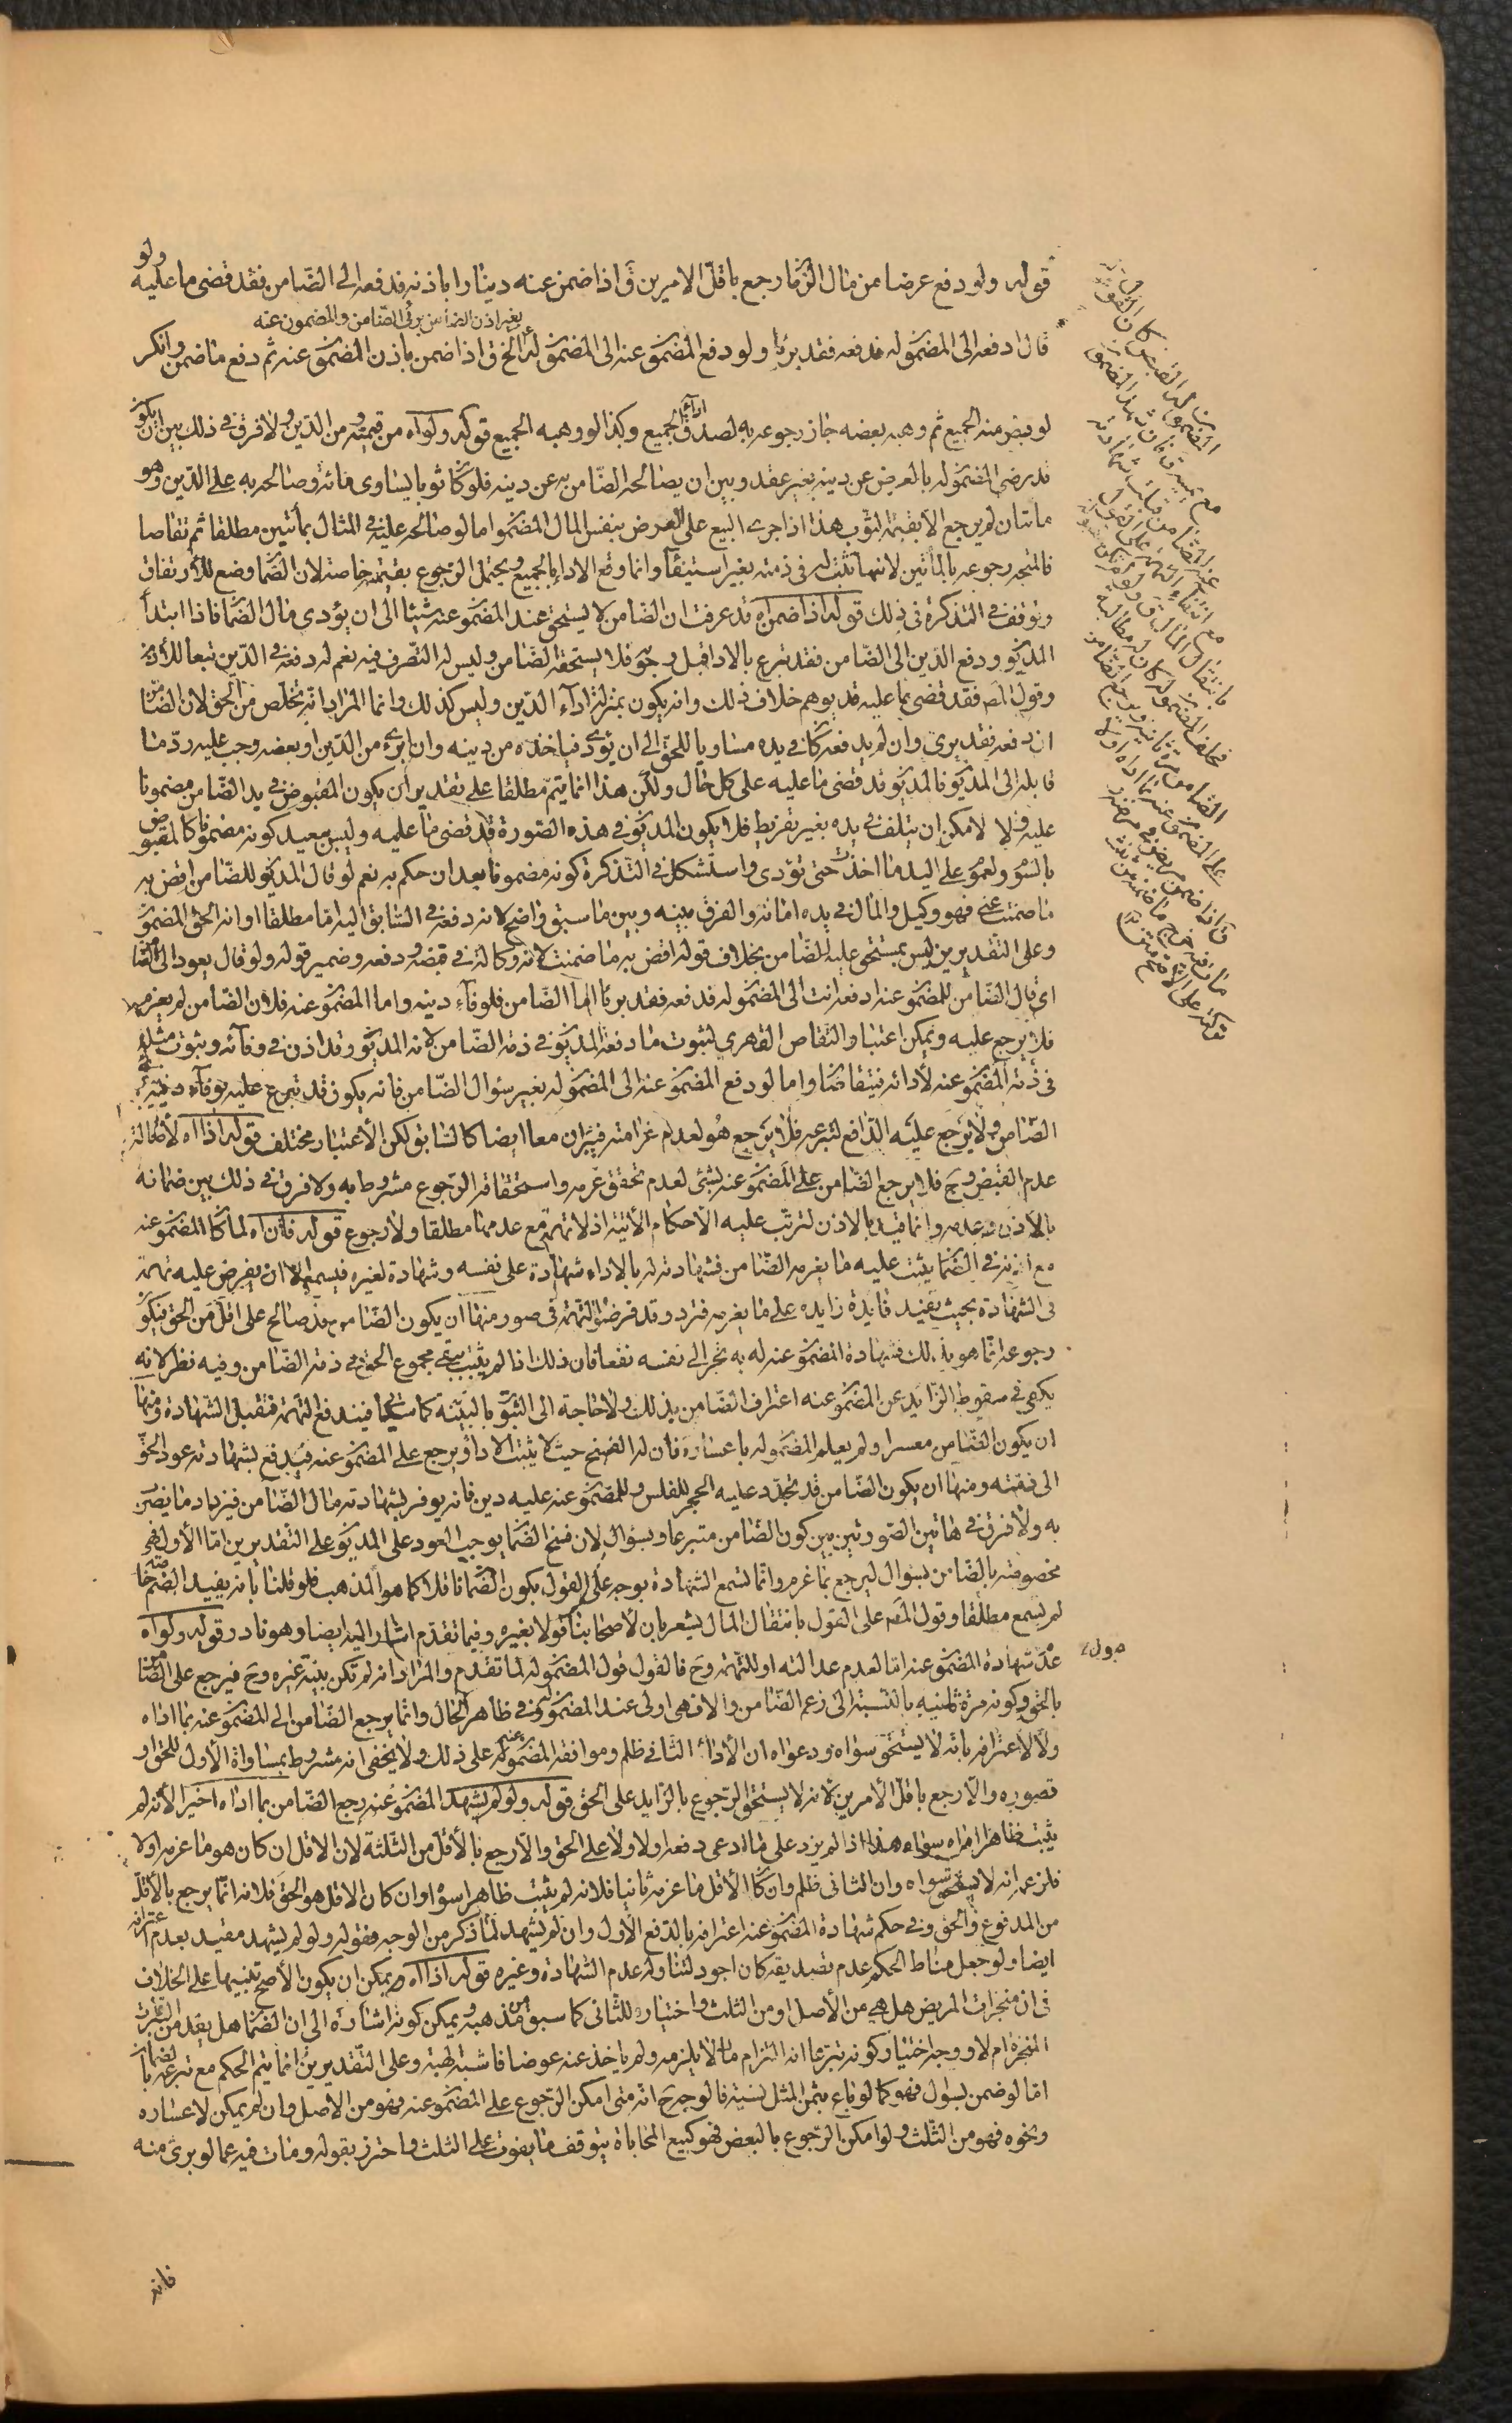 قوله ولو دفع عرضا من مال الضمان رجع باقل الامرين ق اذا ضمن عنه دينارا باذنه فدفعه الى الضامن فقد قضى ما عليه ولو
قال ادفعه الى المضمون له فدفعه فقد برئا ولو دفع المضمون عنه الى المضمون له بغير اذن الضامن برئ الضامن والمضمون عنه الخ ق اذا ضمن باذن المضمون عنه ثم دفع ما ضمن وانكر
لو قبض منه الجميع ثم وهبه بعضه جاز رجوعه به لصدق اداء الجميع وكذا لو وهبه الجميع قوله ولو اه من قيمته ومن الدين ولا فرق في ذلك بين ان يكون
قد رضي المضمون له بالعرض عن دينه بغير عقد وبين ان يصالحه الضامن به عن دينه فلو كان ثوبا يساوي مائة وصالحه به على الدين وهو
مائتان لم يرجع الا بقيمة الثوب هذا اذا جرى البيع على العرض بنفس المال المضمون اما لو صالحه عليه في المثال بمأتين مطلقا ثم تقاصا
فالمتجه رجوعه بالمأتين لانها تثبت له في ذمته بغير استيفاء وانما وقع الاداء بالجميع ويحتمل الرجوع بقيمته خاصة لان الضمان وضع للارتفاق
وتوقف في التذكرة في ذلك قوله اذا ضمن اه قد عرفت ان الضامن لا يستحق عند المضمون عنه شيئا الى ان يؤدي مال الضمان فاذا ابتدأ
المديون ودفع الدين الى الضامن فقد تبرع بالاداء قبل وجوبه فلا يستحقه الضامن وليس له التصرف فيه نعم له دفعه في الدين تبعا للاذن
وقول المص فقد قضى ما عليه قد يوهم خلاف ذلك وانه يكون بمنزلة اداء الدين وليس كذلك وانما المراد انه تخلص من الحق لان الضامن
ان دفعه فقد برئ وان لم يدفعه كان في يده مساويا للحق الى ان يؤدي فيأخذه من دينه وان ابرئ من الدين او بعضه وجب عليه رد ما
قابله الى المديون فالمديون قد قضى ما عليه على كل حال ولكن هذا انما يتم مطلقا على تقدير ان يكون المقبوض في يد الضامن مضمونا
عليه والا لامكن ان يتلف في يده بغير تفريط فلا يكون المديون في هذه الصورة قد قضى ما عليه وليس ببعيد كونه مضمونا كالمقبوض
بالسوم ولعموم على اليد ما اخذت حتى تؤدي واستشكل في التذكرة كونه مضمونا بعد ان حكم به نعم لو قال المديون للضامن اقض به
ما ضمنت عني فهو وكيل والمال في يده امانة والفرق بينه وبين ما سبق واضح لانه دفعه في السابق اليه اما مطلقا او انه الحق المضمون
وعلى التقديرين ليس بمستحق عليه للضامن بخلاف قوله اقض به ما ضمنت لانه وكالة في قبضه ودفعه وضمير قوله ولو قال يعود الى الضامن
اي قال الضامن للمضمون عنه ادفعه انت الى المضمون له فدفعه فقد برئا اما الضامن فلوفاء دينه واما المضمون عنه فلان الضامن لم يغرم
فلا يرجع عليه ويمكن اعتبار التقاص القهري لثبوت ما دفعه المديون في ذمة الضامن لانه المديون وقد اذن في وفائه وثبوت مثله
في ذمة المضمون عنه لادائه فيتقاصان واما لو دفع المضمون عنه الى المضمون له بغير سؤال الضامن فانه يكون قد تبرع عليه بوفاء دينه
الضامن ولا يرجع عليه الدافع لتبرعه فلا يرجع هو لعدم غرامته فيبرءان معا ايضا كالسابق لكن الاعتبار مختلف قوله اذا اه لاصالة
عدم القبض وح فلا يرجع الضامن على المضمون عنه بشئ لعدم تحقق غرمه واستحقاقه الرجوع مشروط به ولا فرق في ذلك بين ضمانه
بالاذن وعدمه وانما قيد بالاذن لترتب عليه الاحكام الآتية اذ لا تهمة مع عدمها مطلقا ولا رجوع قوله فان اه لما كان المضمون عنه
مع اذنه في الضمان يثبت عليه ما يغرمه الضامن فشهادته له بالاداء شهادة على نفسه وشهادة لغيره فيسمع الا ان يفرض عليه تهمة
في الشهادة بحيث يفيد فايدة زايده على ما يغرمه فترد وقد فرضوا التهمة في صور منها ان يكون الضامن قد صالح على اقل من الحق فيكون
رجوعه انما هو بذلك فشهادة المضمون عنه له به تجر الى نفسه نفعا فان ذلك اذا لم يثبت يبقى مجموع الحق في ذمة الضامن وفيه نظر لانه
يكفي في سقوط الزايد عن المضمون عنه اعتراف الضامن بذلك ولا حاجة الى الثبوت بالبينة كما سيأتي فيندفع التهمة فتقبل الشهادة ومنها
ان يكون الضامن معسرا ولم يعلم المضمون له باعساره فان له الفسخ حيث لا يثبت الاداء ويرجع على المضمون عنه فيدفع بشهادته عود الحق
الى ذمته ومنها ان يكون الضامن قد تجدد عليه الحجر للفلس وللمضمون عنه عليه دين فانه يوفر بشهادته مال الضامن فيزداد ما يضرب
به ولا فرق في هاتين الصورتين بين كون الضامن متبرعا وبسؤال لان فسخ الضمان يوجب العود على المديون على التقديرين اما الاول فهي
مخصوصة بالضامن بسؤال ليرجع بما غرم وانما تسمع الشهادة بوجه على القول بكون الضمان ناقلا كما هو المذهب فلو قلنا بأنه يفيد الضم
لم يسمع مطلقا وقول المص على القول بانتقال المال يشعر بان لاصحابنا قولا بغيره وفيما تقدم اشار اليه ايضا وهو نادر قوله ولو اه
عدم شهادة المضمون عنه اما لعدم عدالته او للتهمة وح فالقول قول المضمون له لما تقدم والمراد انه لم تكن بينة غيره وح فيرجع على الضامن
بالحق وكونه مرة ثانية بالنسبة الى زعم الضامن والا فهي اولى عند المضمون له وفي ظاهر الحال وانما يرجع الضامن الى المضمون عنه بما اداه
اولا لاعترافه بانه لا يستحق سواه ودعواه ان الاداء الثاني ظلم وموافقة المضمون عنه له على ذلك ولا يخفى انه مشروط بمساواة الاول للحق او
قصوره والا رجع باقل الامرين لانه لا يستحق الرجوع بالزايد على الحق قوله ولو لم يشهد المضمون عنه رجع الضامن بما اداه اخيرا لانه لم
يثبت ظاهرا اداه سواه هذا اذا لم يزد على ما ادعى دفعه اولا ولا على الحق والا رجع بالاقل من الثلثة لان الاقل ان كان هو ما غرمه اولا
فلزعمه انه لا يستحق سواه وان الثاني ظلم وان كان الاقل ما غرمه ثانيا فلانه لم يثبت ظاهرا سواه وان كان الاقل هو الحق فلانه انما يرجع بالاقل
من المدفوع والحق وفي حكم شهادة المضمون عنه اعترافه بالدفع الاول وان لم يشهد لما ذكر من الوجه فقوله ولو لم يشهد مقيد بعدم اعترافه
ايضا ولو جعل مناط الحكم عدم تصديقه كان اجود لتناوله عدم الشهادة وغيره قوله اذا اه يمكن ان يكون الاصح تنبيها على الخلاف
في ان منجزات المريض هل هي من الاصل او من الثلث واختياره للثاني كما سبق من مذهبه ويمكن كونه اشارة الى ان الضمان هل يعد من التبرعات
المنجزة ام لا ووجه اختياره كونه تبرعا انه التزام مال لا يلزمه ولم يأخذ عنه عوضا فاشبه الهبة وعلى التقديرين انما يتم الحكم مع تبرعه بالضمان
اما لو ضمن بسؤال فهو كما لو باع بثمن المثل نسية فالوجه ح انه متى امكن الرجوع على المضمون عنه فهو من الاصل وان لم يمكن لاعساره
ونحوه فهو من الثلث ولو امكن الرجوع بالبعض فهو كبيع المحاباة يتوقف ما يفوت على الثلث واحترز بقوله ومات فيه عما لو برئ منه
فانه
المضمون له القبض كان القول قوله
مع يمينه فان شهد المضمون
عنه للضامن قبلت شهادته
مع انتفاء التهمة على القول
بانتقال المال ولو لم يكن مقبولا
فحلف المضمون له كان له مطالبة
الضامن مرة ثانية ويرجع الضامن
على المضمون عنه بما اداه اولا
ق اذا ضمن المريض في مرضه
ومات فيه خرج ما ضمنه من ثلث
تركته على الاصح